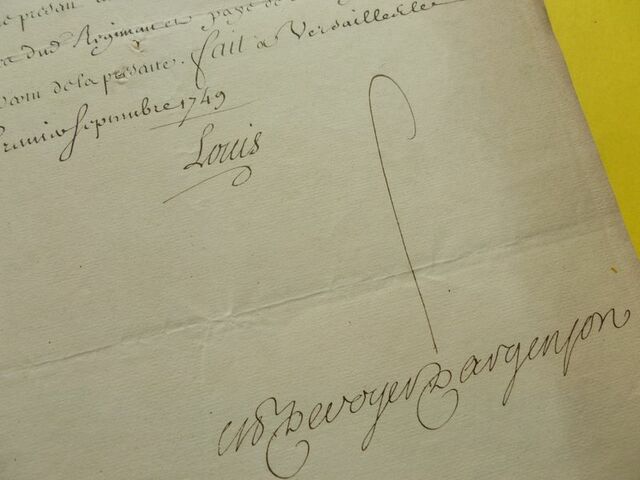 present
dud Regiment et payé de
de la presente. fait a Versailles le
premier Septembre 1749
Louis
M De voyer D argenson